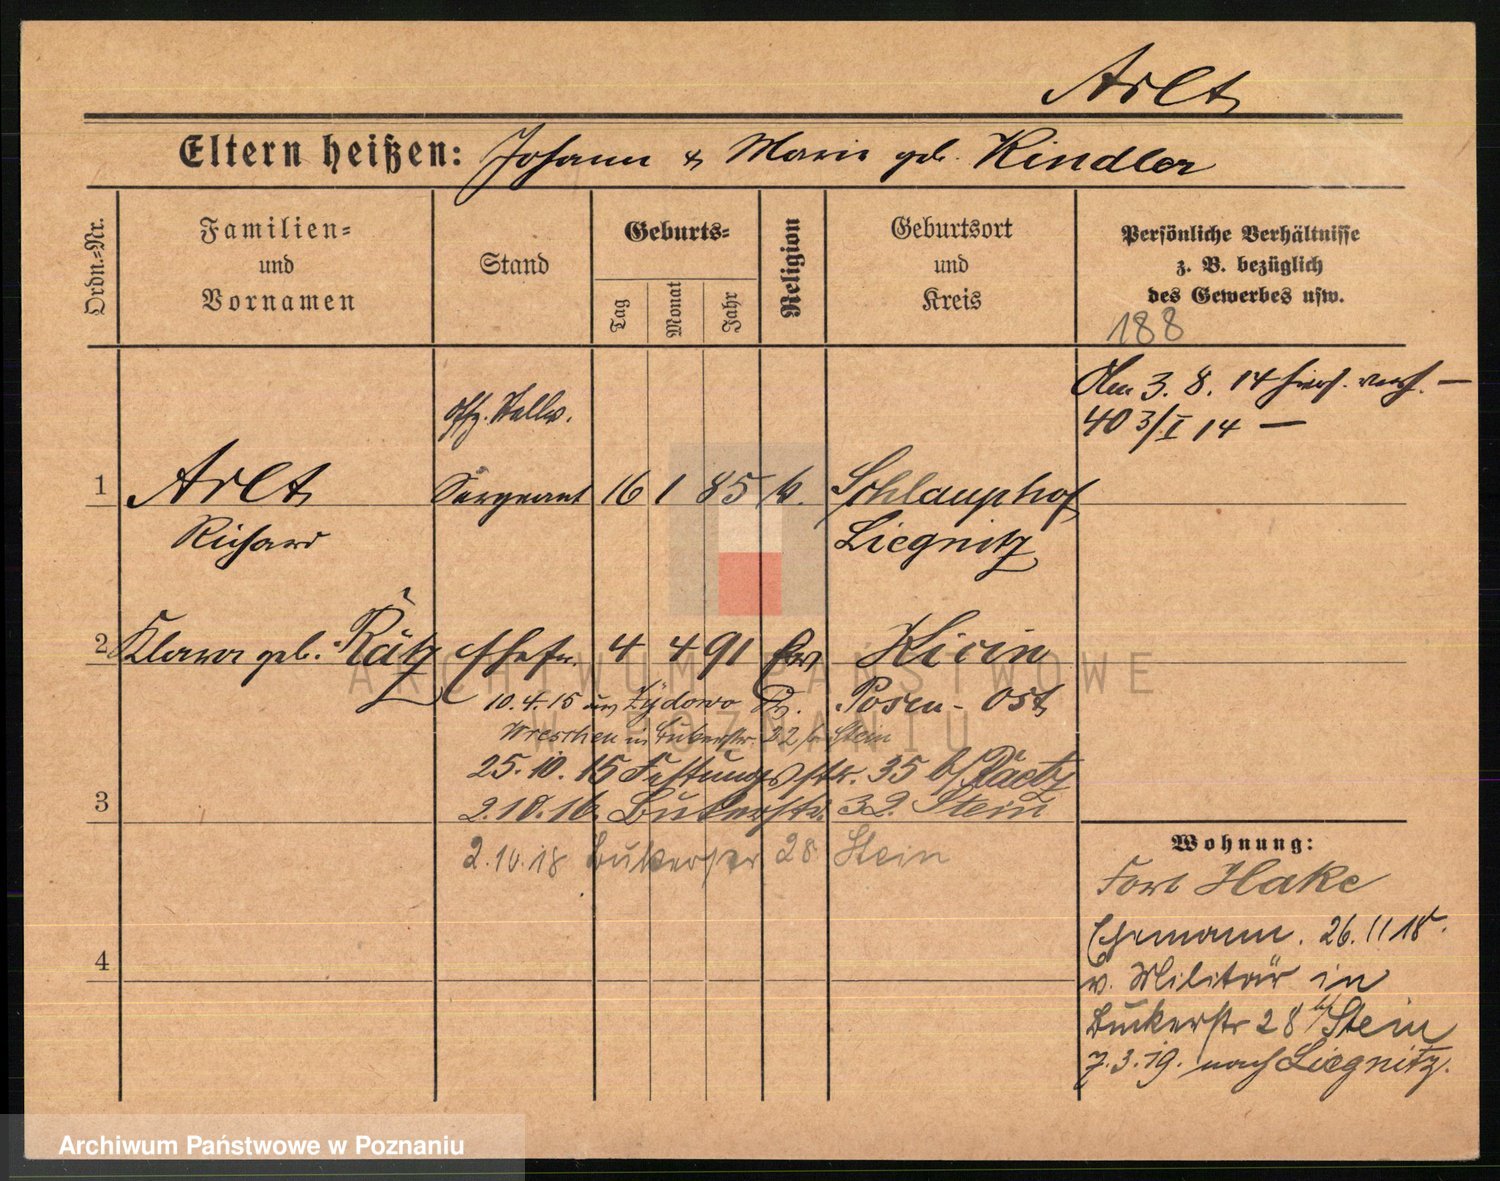 Arlt
Eltern heißen: Johann & Marie geb. Kindler
Ordn.-Nr.
Familien- und Vornamen
Stand
Geburts-
Tag
Monat
Jahr
Religion
Geburtsort und Kreis
Persönliche Verhältnisse z. B. bezüglich des Gewerbes usw.
188
Am 3. 8. 14 verh. —
40 3/I 14 —
Offz. Stellv.
1 Arlt Sergeant 16 1 85 k. Schlauphof
Richard Liegnitz
2 Klara geb. Rätz Ehefr. 4 4 91 ev Kicin
10.4.15 Zydowo Posen-Ost
Wreschen in Bukerstr. 32 b/ Stein
25.10.15 Festungsstr. 35 b/ Raetz
3 2.10.16. Bukerstr. 32. Stein
2.10.18 Bukerstr 28 Stein
Wohnung:
Fort Hake
Ehemann. 26.11 18.
v. Militär in
4
Bukerstr 28 b/ Stein
7.3.19. nach Liegnitz.
ARCHIWUM PAŃSTWOWE
W POZNANIU
Archiwum Państwowe w Poznaniu